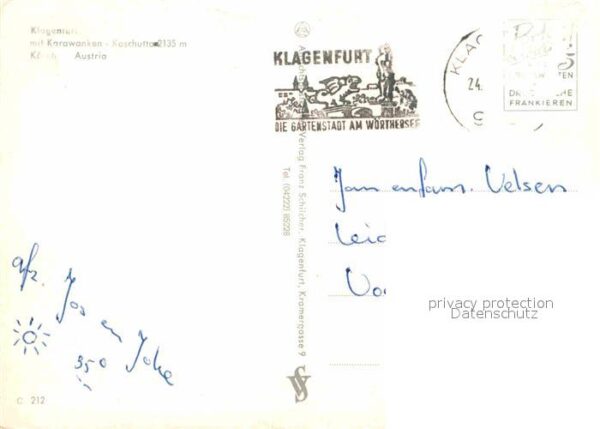 Klagenfurt
mit Karawanken - Koschutta 2135 m
Austria
KLAGENFURT
DIE GARTENSTADT AM WÖRTHERSEE
24.
FRANKIEREN
Verlag Franz Schilcher, Klagenfurt, Kramergasse 9
Tel. (04222) 85228
Jan en fam. Velsen
afz. Jos en Joke
35°
privacy protection
Datenschutz
C 212